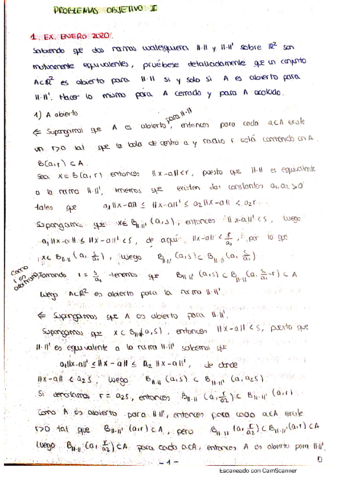 PROBLEMAS OBJETIVO I
1. EX. ENERO 2020:
Sabiendo que dos normas cualesquiera ||·|| y ||·||' sobre ℝ² son
mutuamente equivalentes, pruébese detalladamente que un conjunto
A⊂ℝ² es abierto para ||·|| si y solo si A es abierto para
||·||'. Hacer lo mismo para A cerrado y para A acotado.
1) A abierto
para ||·||
⇐ Supongamos que A es abierto, entonces para cada a∈A existe
un r>0 tal que la bola de centro a y radio r está contenida en A
B(a,r) ⊂ A
Sea x ∈ B(a,r) entonces ||x-a||<r, puesto que ||·|| es equivalente
a la norma ||·||', tenemos que existen dos constantes a₁,a₂>0
tales que a₁||x-a|| ≤ ||x-a||' ≤ a₂||x-a|| < a₂r
Supongamos que x∈ B||·||'(a,s), entonces ||x-a||' < s, luego
a₁||x-a|| ≤ ||x-a||' < s, de aquí, ||x-a|| < , por lo que
x∈ B||·||(a, ), luego B||·||'(a,s) ⊂ B||·||(a, )
Como
Tomando tenemos que B||·||'(a,s) ⊂ B||·||(a, ) ⊂ A
Luego A⊂ℝ² es abierto para la norma ||·||'.
⇐ Supongamos que A es abierto para ||·||'.
Supongamos que x ∈ B||·||(a,s), entonces ||x-a|| < s, puesto que
||·||' es equivalente a la norma ||·|| sabemos que
a₁||x-a||' ≤ ||x-a|| ≤ a₂ ||x-a||, de donde
||x-a||' < a₂s, luego B||·||(a,s) ⊂ B||·||'(a, a₂s)
Si denotamos r = a₂s, entonces B||·||(a, r/a₂) ⊂ B||·||'(a,r)
Como A es abierto para ||·||', entonces para cada a∈A existe
r>0 tal que B||·||'(a,r) ⊂ A, pero B||·||(a, r/a₂) ⊂ B||·||'(a,r)
Luego B||·||(a, r/a₂) ⊂ A para cada a∈A, entonces A es abierto para ||·||.
- 1 -
Escaneado con CamScanner